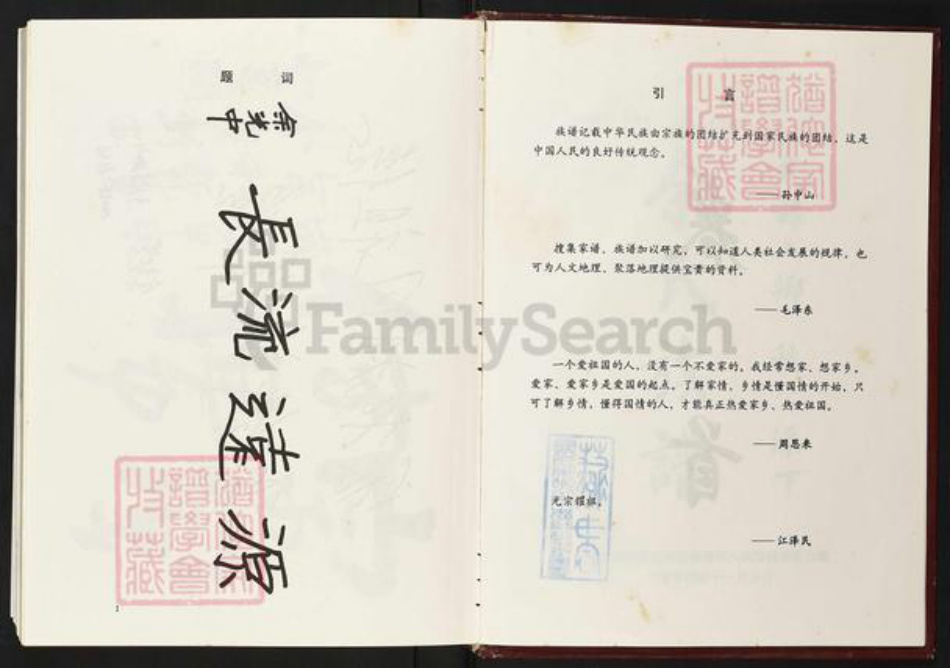 题词
源遠流長
余光中
猶他家
譜學會
收藏
1
引言
族谱记载中华民族由宗族的团结扩充到国家民族的团结，这是
中国人民的良好传统观念。
——孙中山
搜集家谱、族谱加以研究，可以知道人类社会发展的规律，也
可为人文地理、聚落地理提供宝贵的资料。
——毛泽东
一个爱祖国的人，没有一个不爱家的。我经常想家、想家乡。
爱家、爱家乡是爱国的起点。了解家情，乡情是懂国情的开始，只
可了解乡情，懂得国情的人，才能真正热爱家乡、热爱祖国。
——周恩来
光宗耀祖。
——江泽民
猶他家
譜學會
收藏
FamilySearch